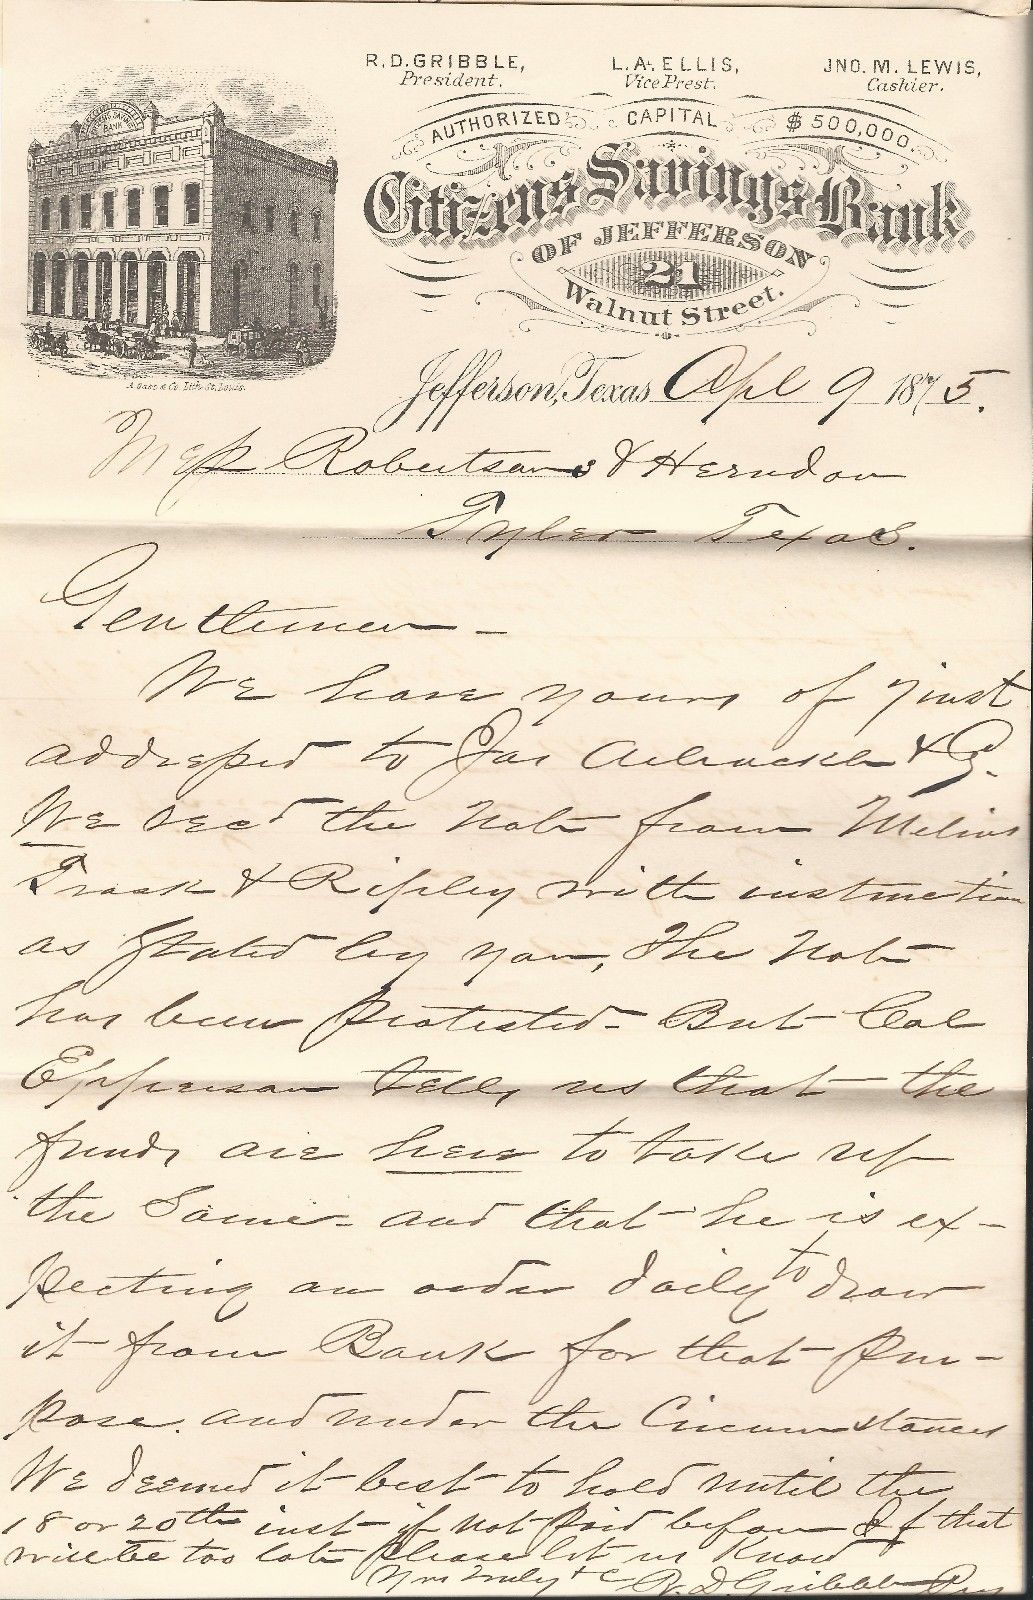 R. D. GRIBBLE, President.
L. A. ELLIS, Vice Prest.
JNO. M. LEWIS, Cashier.
AUTHORIZED CAPITAL $500,000.
Citizens Savings Bank
OF JEFFERSON
21
Walnut Street.
SAVINGS BANK
A. Gast & Co. Lith. St. Louis.
Jefferson, Texas Apl 9 1875.
Mess Robertson & Herndon
Tyler Texas.
Gentlemen -
We have yours of 7 inst
addressed to Jas Arbuckle & Co.
We recd the Note from Melius
Trask & Ripley with instruction
as Stated by you, The Note
has been protested - But Col
Epperson tells us that the
funds are here to take up
the Same - and that he is ex-
pecting an order daily to draw
it from Bank for that Pur-
pose. and under the Circumstances
We deemed it best to hold until the
18 or 20th inst if not paid before If that
will be too late please let us Know
Yrs Truly &c R. D. Gribble Pres